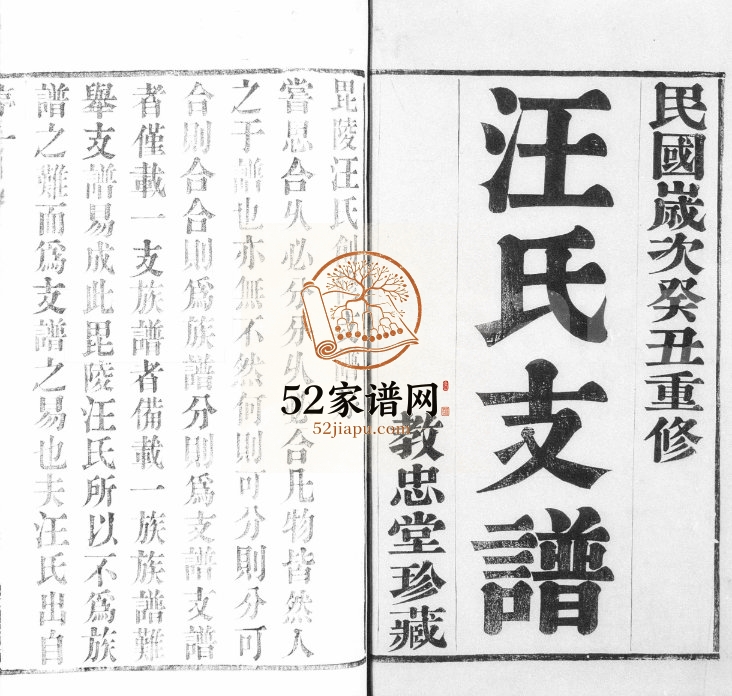 民國歲次癸丑重修
汪氏支譜
教忠堂珍藏
毘陵汪氏創
嘗思合久必分分久必合凡物皆然人
之于譜也亦無不然何則可分則分可
合則合合則爲族譜分則爲支譜支譜
者僅載一支族譜者備載一族族譜難
舉支譜易成此毘陵汪氏所以不爲族
譜之難而爲支譜之易也夫汪氏出自
52家谱网
52jiapu.com